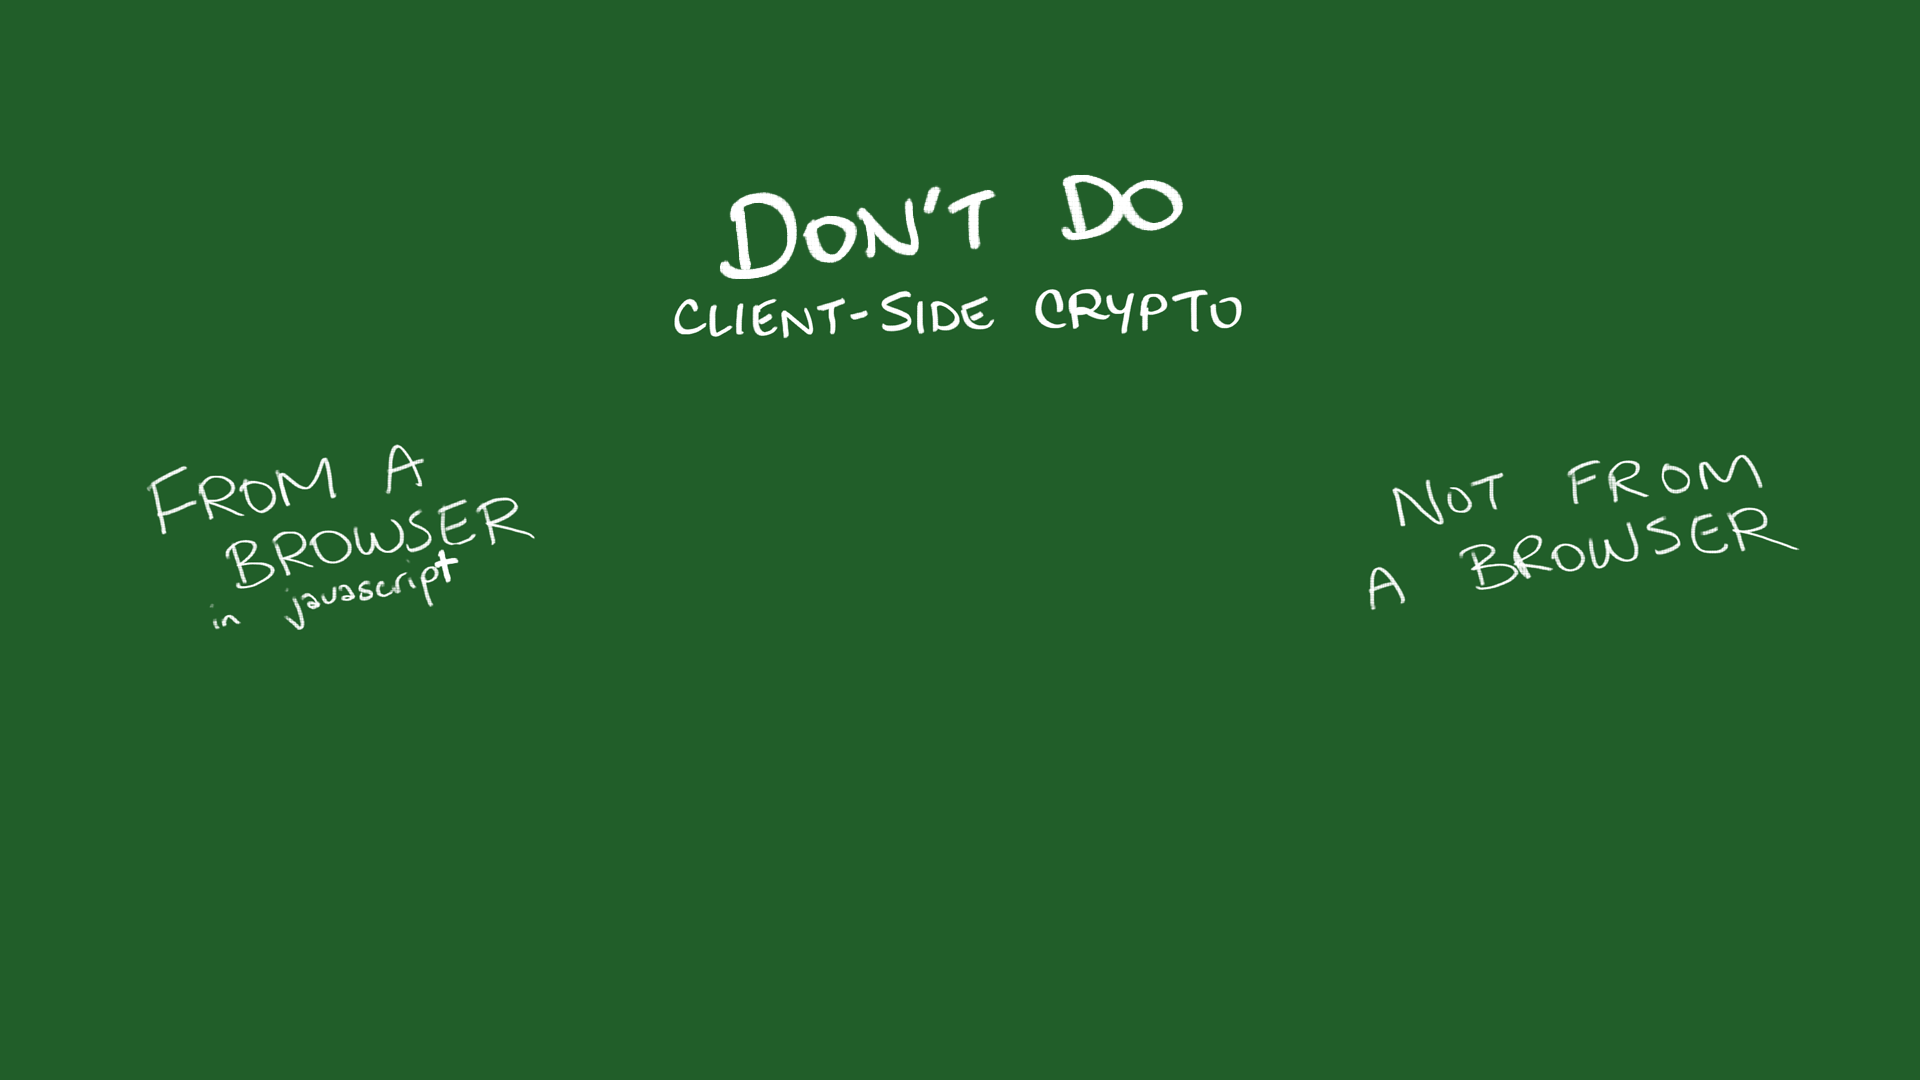 DON'T DO
CLIENT-SIDE CRYPTO
FROM A
BROWSER
in javascript
NOT FROM
A BROWSER